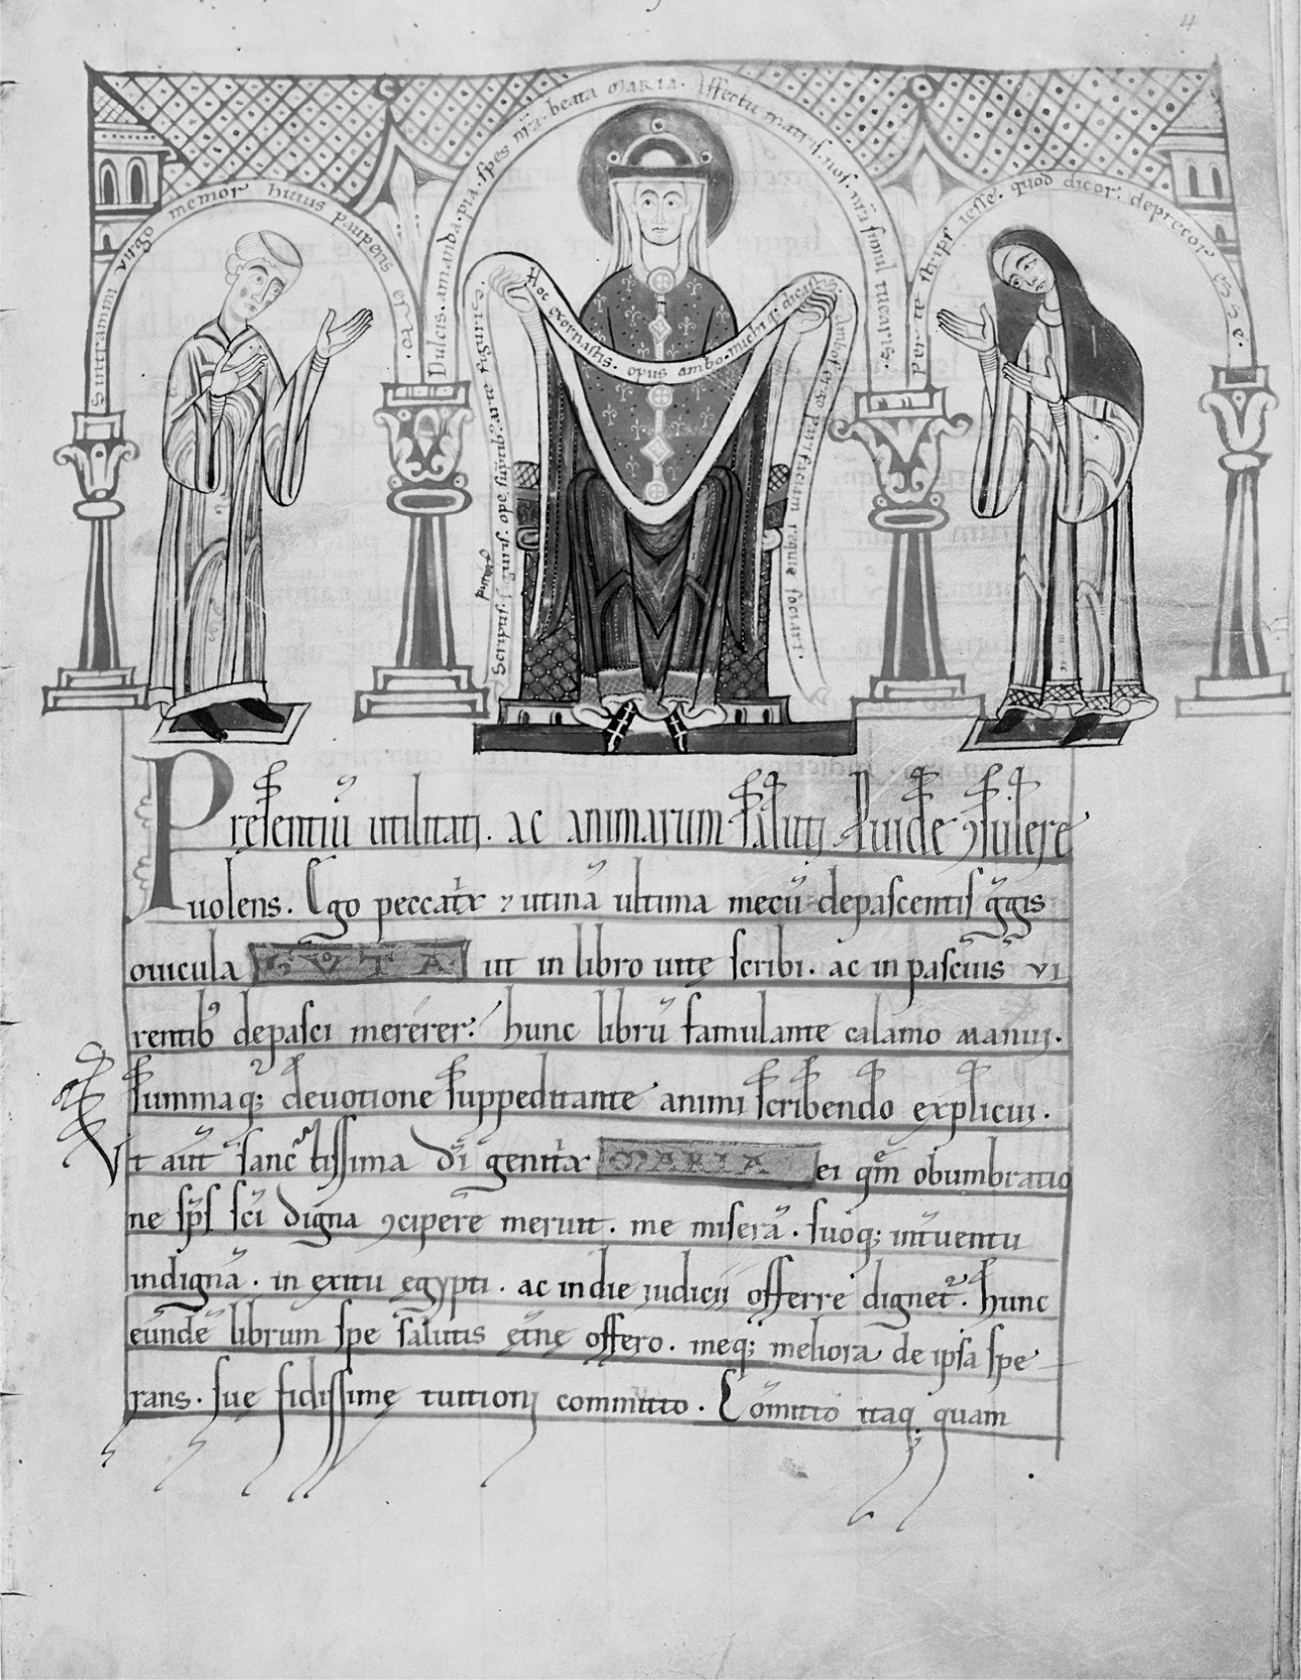 4
Sintrammi virgo memor huius pauperis esto.
Dulcis. amanda. pia. spes nr̄a. beata MARIA. Affectu matris. nos. nr̄a simul tuearis.
Per te stirps iesse. quod dicor. deprecor esse.
Hoc exornastis. opus ambo. michi qđ dicastis.
Scripsis. figuris. ope
figuris.
Ambos
faciam requie sociari.
Presentiū utilitati. ac animarum saluti Puide ꝯsulere
uolens. Ego peccatͥx ⁊ utinā ultima mecū depascentis gͥgis
ouicula GVTA ut in libro uitę scribi. ac in pascuis vi
rentibꝰ depasci mererer. hunc librū famulante calamo manuj.
summaq; deuotione suppeditante animi scribendo explicui.
Vt aut̄ sanctissima di genitͥx MARIA ei qm̄ obumbratio
ne sp̄s sc̄i digna ꝯcipere meruit. me miserā. suoq; intuentu
indignā. in exitu egypti. ac in die iudicii offerre dignet᷑. hunc
eūnde librum spe salutis et̄nę offero. meq; meliora de ipsa spe
rans. suę fidissimę tuitionj committo. Cōmitto itaq quam